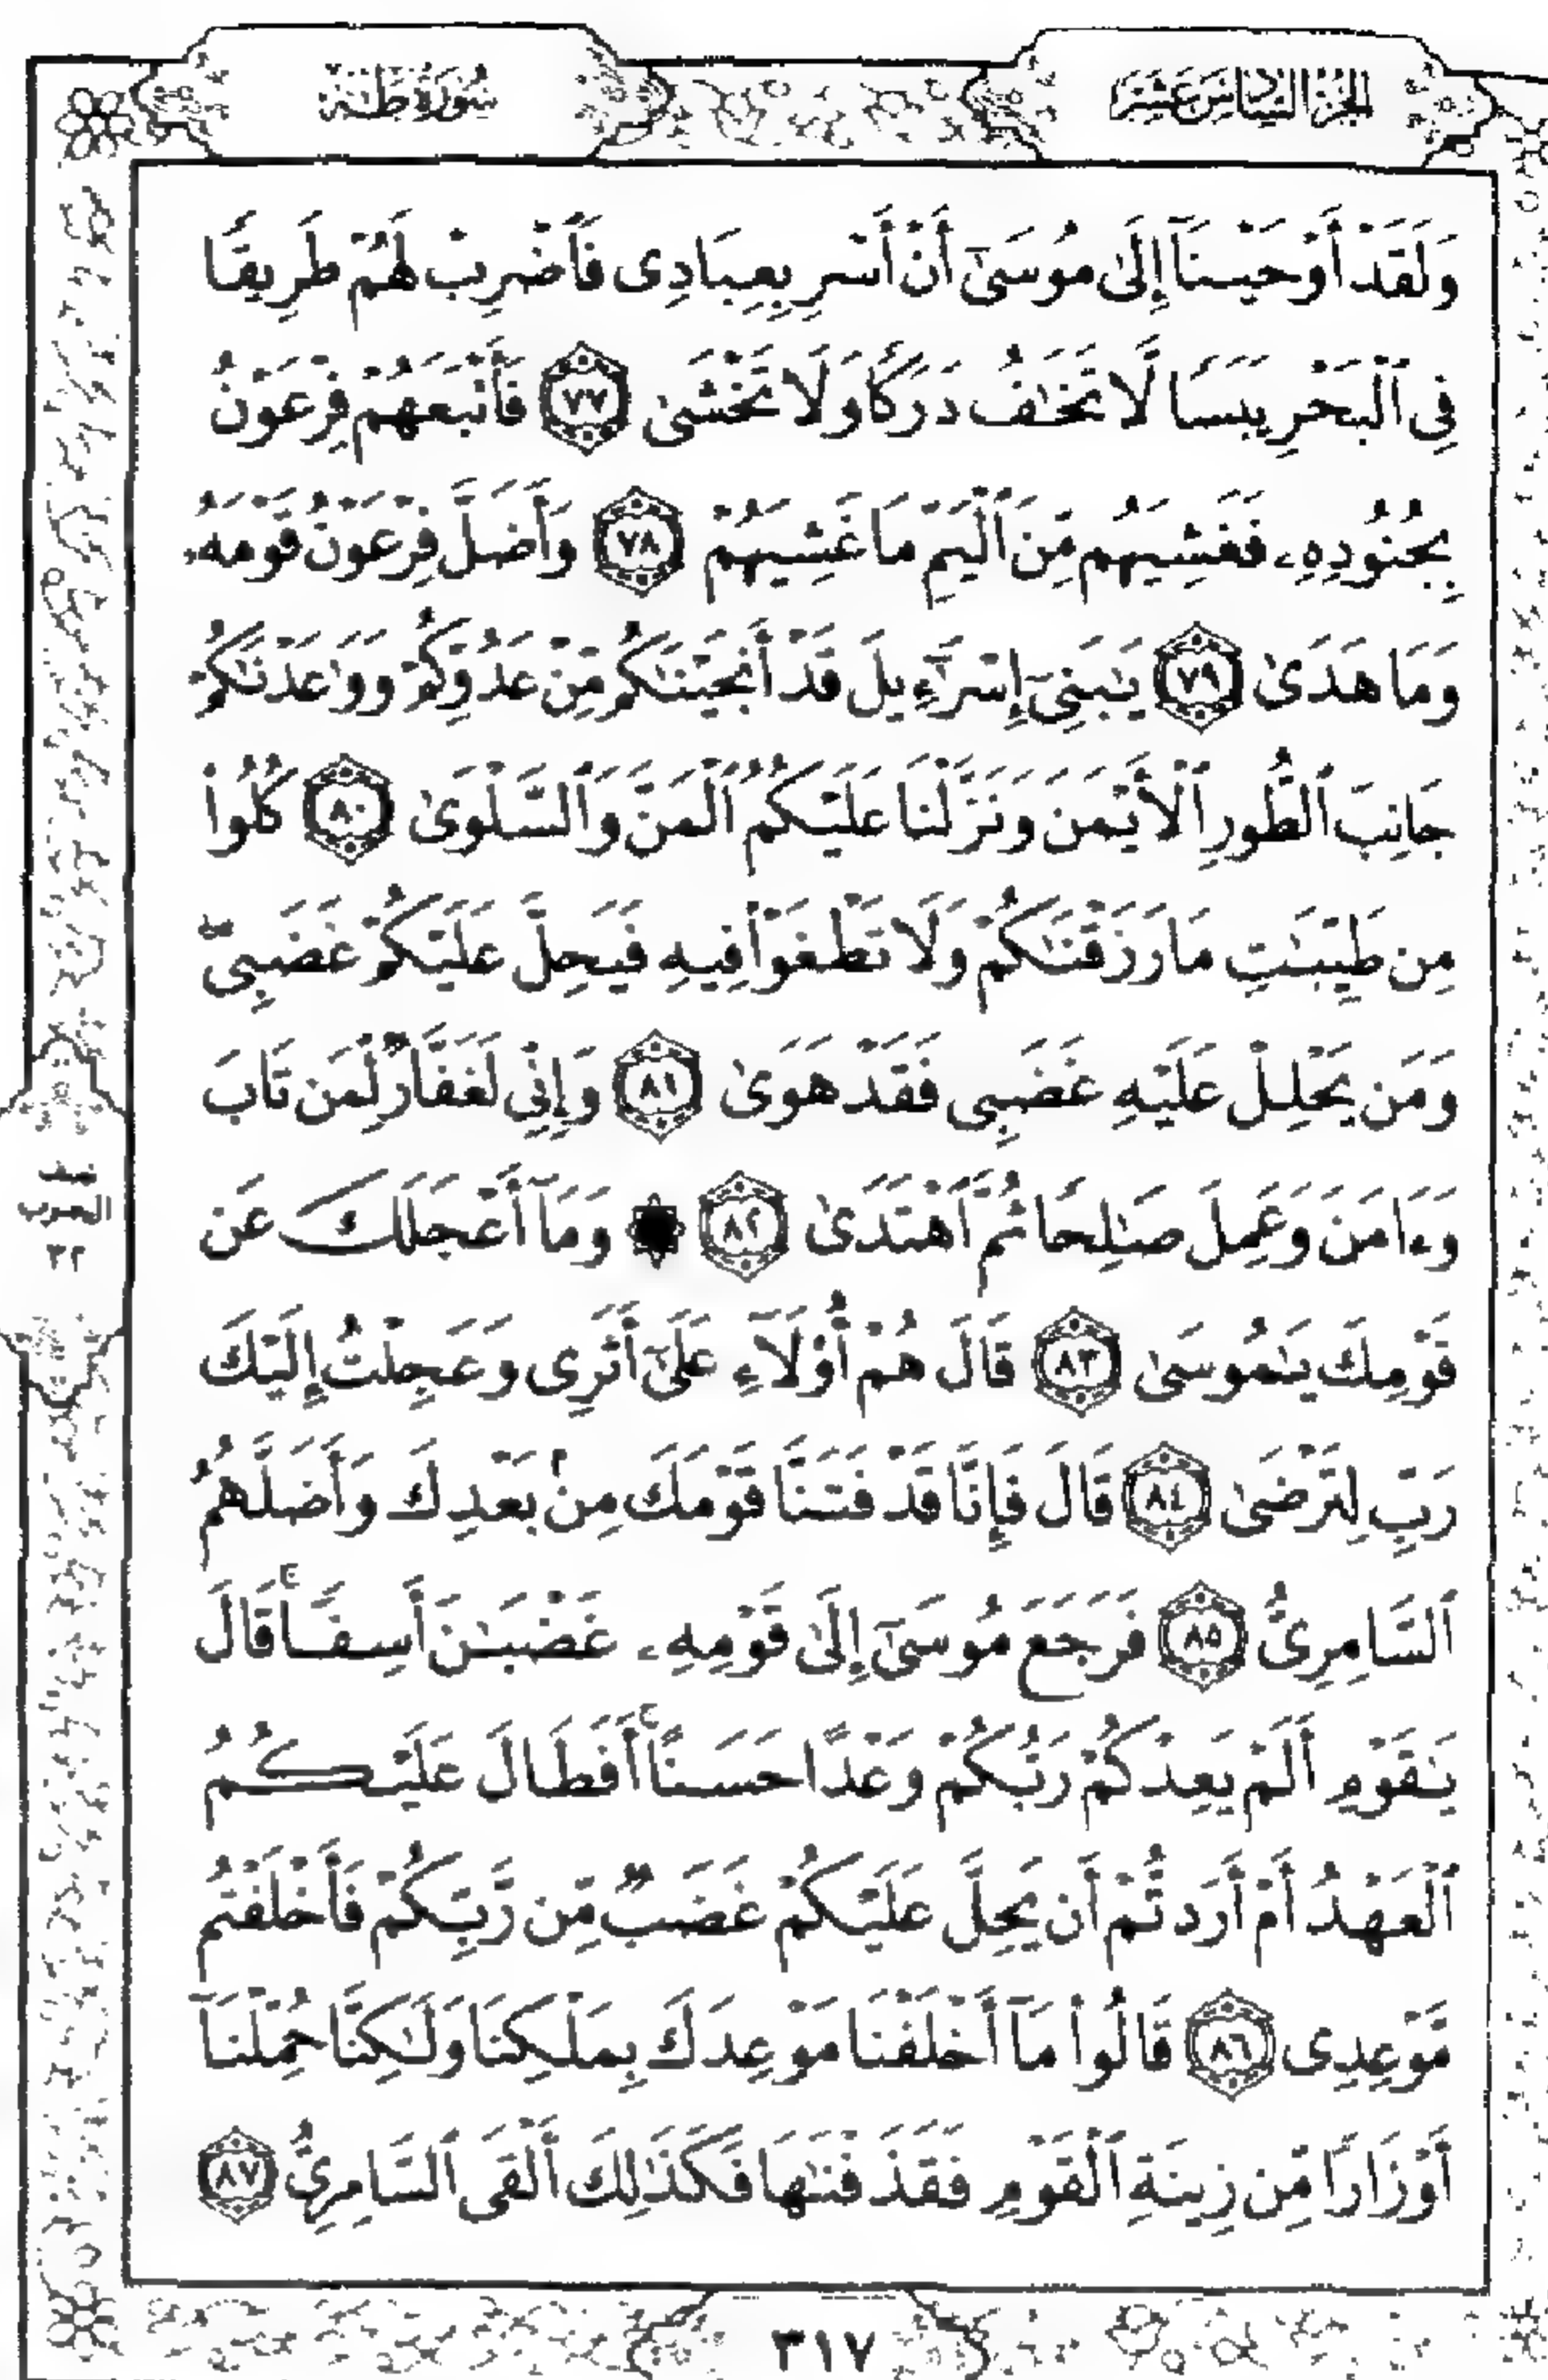 الجزء السادس عشر
سورة طه
وَلَقَدْ أَوْحَيْنَآ إِلَىٰ مُوسَىٰٓ أَنْ أَسْرِ بِعِبَادِى فَٱضْرِبْ لَهُمْ طَرِيقًا
فِى ٱلْبَحْرِ يَبَسًا لَّا تَخَٰفُ دَرَكًا وَلَا تَخْشَىٰ ٧٧ فَأَتْبَعَهُمْ فِرْعَوْنُ
بِجُنُودِهِۦ فَغَشِيَهُم مِّنَ ٱلْيَمِّ مَا غَشِيَهُمْ ٧٨ وَأَضَلَّ فِرْعَوْنُ قَوْمَهُۥ
وَمَا هَدَىٰ ٧٩ يَٰبَنِىٓ إِسْرَٰٓءِيلَ قَدْ أَنجَيْنَٰكُم مِّنْ عَدُوِّكُمْ وَوَٰعَدْنَٰكُمْ
جَانِبَ ٱلطُّورِ ٱلْأَيْمَنَ وَنَزَّلْنَا عَلَيْكُمُ ٱلْمَنَّ وَٱلسَّلْوَىٰ ٨٠ كُلُوا۟
مِن طَيِّبَٰتِ مَا رَزَقْنَٰكُمْ وَلَا تَطْغَوْا۟ فِيهِ فَيَحِلَّ عَلَيْكُمْ غَضَبِىۖ
وَمَن يَحْلِلْ عَلَيْهِ غَضَبِى فَقَدْ هَوَىٰ ٨١ وَإِنِّى لَغَفَّارٌ لِّمَن تَابَ
وَءَامَنَ وَعَمِلَ صَٰلِحًا ثُمَّ ٱهْتَدَىٰ ٨٢ ۞ وَمَآ أَعْجَلَكَ عَن
قَوْمِكَ يَٰمُوسَىٰ ٨٣ قَالَ هُمْ أُو۟لَآءِ عَلَىٰٓ أَثَرِى وَعَجِلْتُ إِلَيْكَ
رَبِّ لِتَرْضَىٰ ٨٤ قَالَ فَإِنَّا قَدْ فَتَنَّا قَوْمَكَ مِنۢ بَعْدِكَ وَأَضَلَّهُمُ
ٱلسَّامِرِىُّ ٨٥ فَرَجَعَ مُوسَىٰٓ إِلَىٰ قَوْمِهِۦ غَضْبَٰنَ أَسِفًاۚ قَالَ
يَٰقَوْمِ أَلَمْ يَعِدْكُمْ رَبُّكُمْ وَعْدًا حَسَنًاۚ أَفَطَالَ عَلَيْكُمُ
ٱلْعَهْدُ أَمْ أَرَدتُّمْ أَن يَحِلَّ عَلَيْكُمْ غَضَبٌ مِّن رَّبِّكُمْ فَأَخْلَفْتُم
مَّوْعِدِى ٨٦ قَالُوا۟ مَآ أَخْلَفْنَا مَوْعِدَكَ بِمَلْكِنَا وَلَٰكِنَّا حُمِّلْنَآ
أَوْزَارًا مِّن زِينَةِ ٱلْقَوْمِ فَقَذَفْنَٰهَا فَكَذَٰلِكَ أَلْقَى ٱلسَّامِرِىُّ ٨٧
الحزب
٣٢
٣١٧